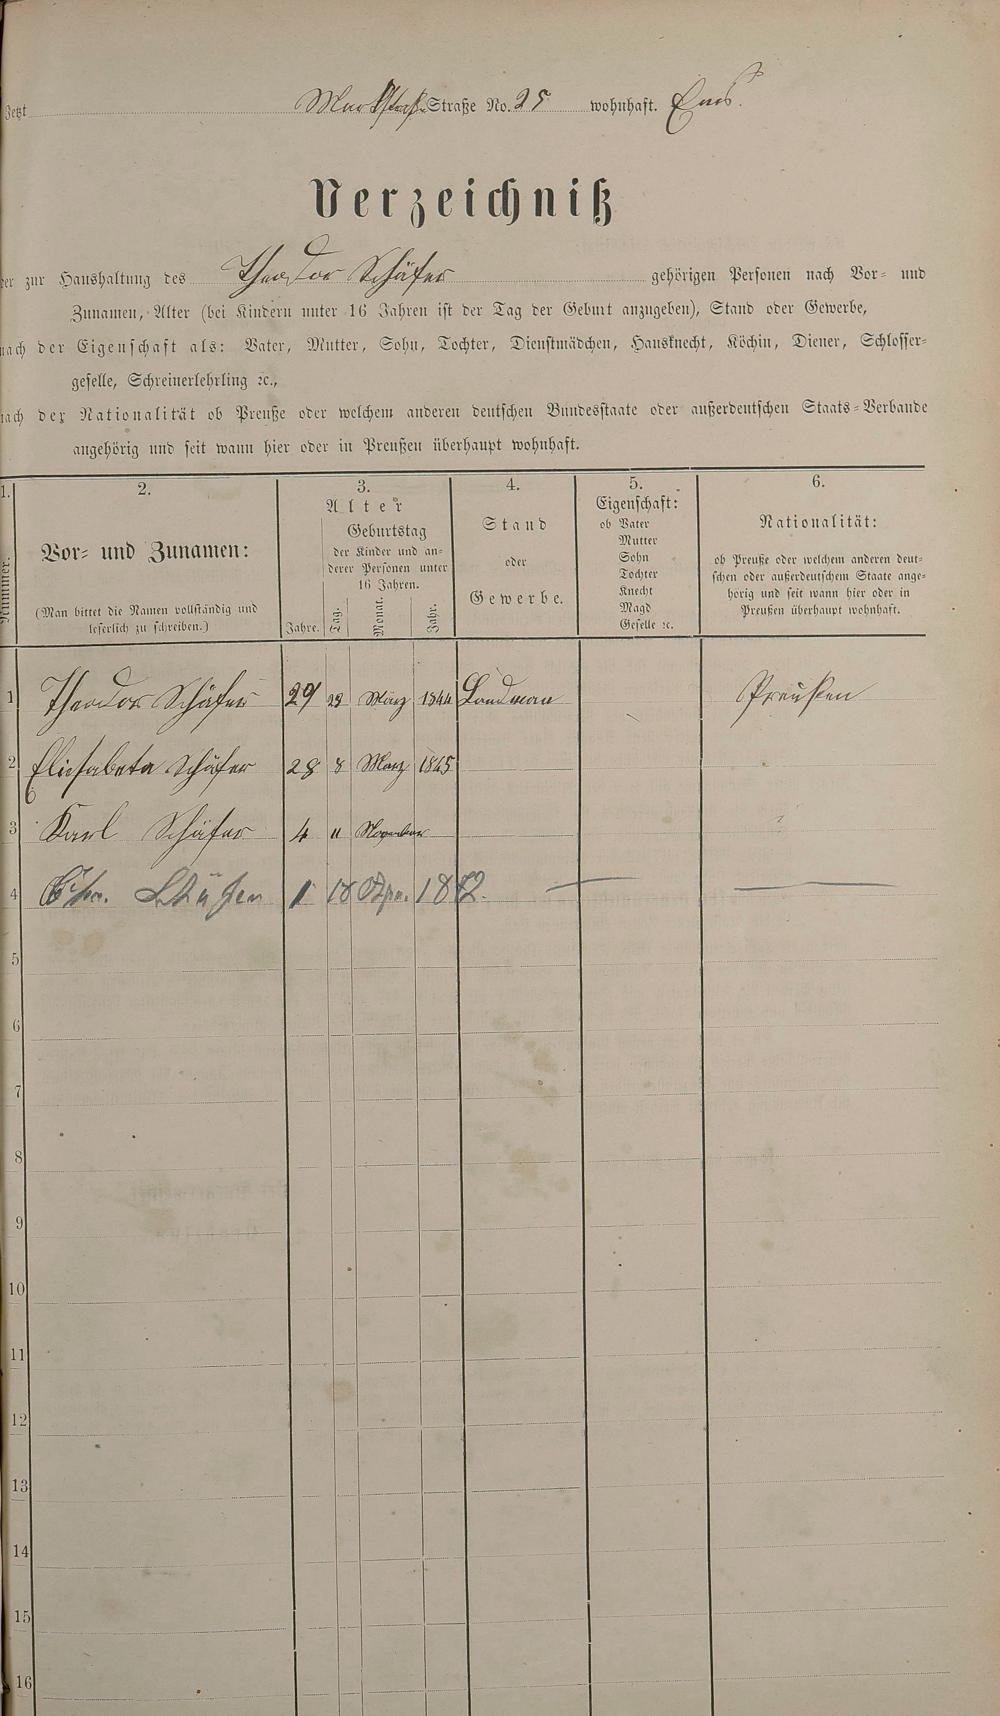 Jetzt Markstraß Straße No. 25 wohnhaft. Ems.
Verzeichniß
der zur Haushaltung des Theodor Schäfer gehörigen Personen nach Vor- und
Zunamen, Alter (bei Kindern unter 16 Jahren ist der Tag der Geburt anzugeben), Stand oder Gewerbe,
nach der Eigenschaft als: Vater, Mutter, Sohn, Tochter, Dienstmädchen, Hausknecht, Köchin, Diener, Schlosser-
geselle, Schreinerlehrling ꝛc.,
nach der Nationalität ob Preuße oder welchem anderen deutschen Bundesstaate oder außerdeutschen Staats-Verbande
angehörig und seit wann hier oder in Preußen überhaupt wohnhaft.
1. 2. 3. 4. 5. 6.
Nummer.
Vor- und Zunamen:
(Man bittet die Namen vollständig und
leserlich zu schreiben.)
Alter
Geburtstag
der Kinder und an-
derer Personen unter
16 Jahren.
Jahre. Tag. Monat. Jahr.
Stand
oder
Gewerbe.
Eigenschaft:
ob Vater
Mutter
Sohn
Tochter
Knecht
Magd
Geselle ꝛc.
Nationalität:
ob Preuße oder welchem anderen deut-
schen oder außerdeutschem Staate ange-
hörig und seit wann hier oder in
Preußen überhaupt wohnhaft.
1 Theodor Schäfer 29 März 1844 Landman Preußen
2 Eliesabeta Schäfer 28 8 März 1845
3 Karl Schäfer 4 11 November
4 Schäfer 1 18 Apr. 1872.
5
6
7
8
9
10
11
12
13
14
15
16